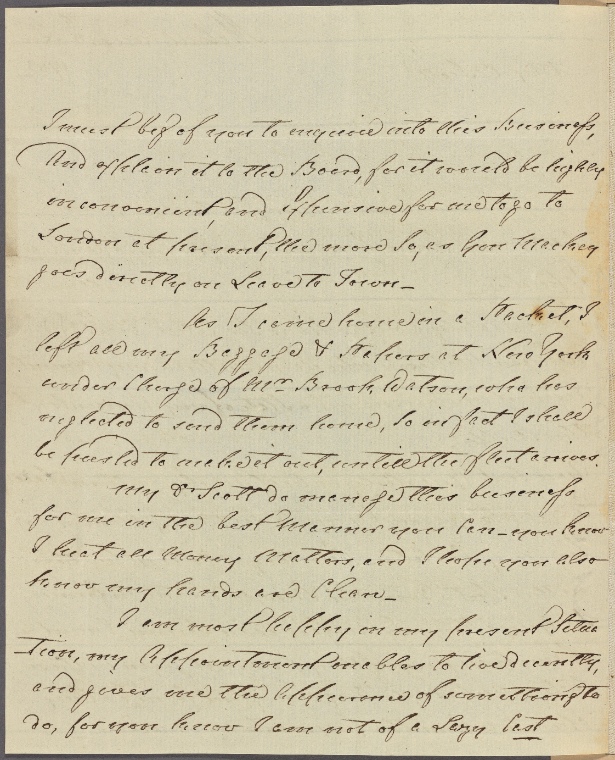 I must beg of you to enquire into this Business,
And explain it to the Board, for it would be highly
inconvenient, and Expensive for me to go to
London at present, the more So, as Gen Mackay
goes directly on Leave to Town—
As I came home in a Packet, I
left all my Baggage & Papers at New York
under Charge of Mr Brook Watson, who has
neglected to send them home, So in fact I shall
be puzled to make it out, untill the fleet arrives.
My Dr Scott do manage this business
for me in the best Manner you Can—you know
I hate all Money Matters, and I hope you also
know my hands are Clean—
I am most happy in my present Situa
-tion, my Appointment enables to live decently,
and gives me the Appearance of something to
do, for you know I am not of a Lazy Cast